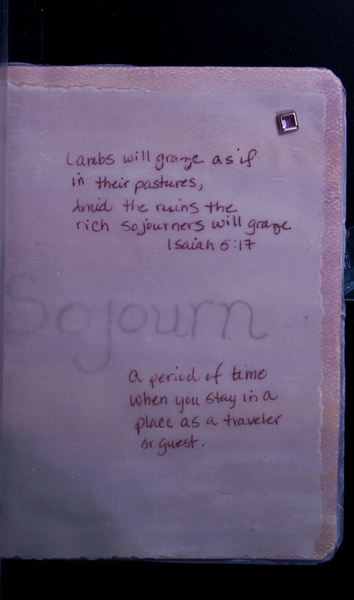 Lambs will graze as if
in their pastures,
Amid the ruins the
rich sojourners will graze
Isaiah 5:17
Sojourn
a period of time
when you stay in a
place as a traveler
or guest.